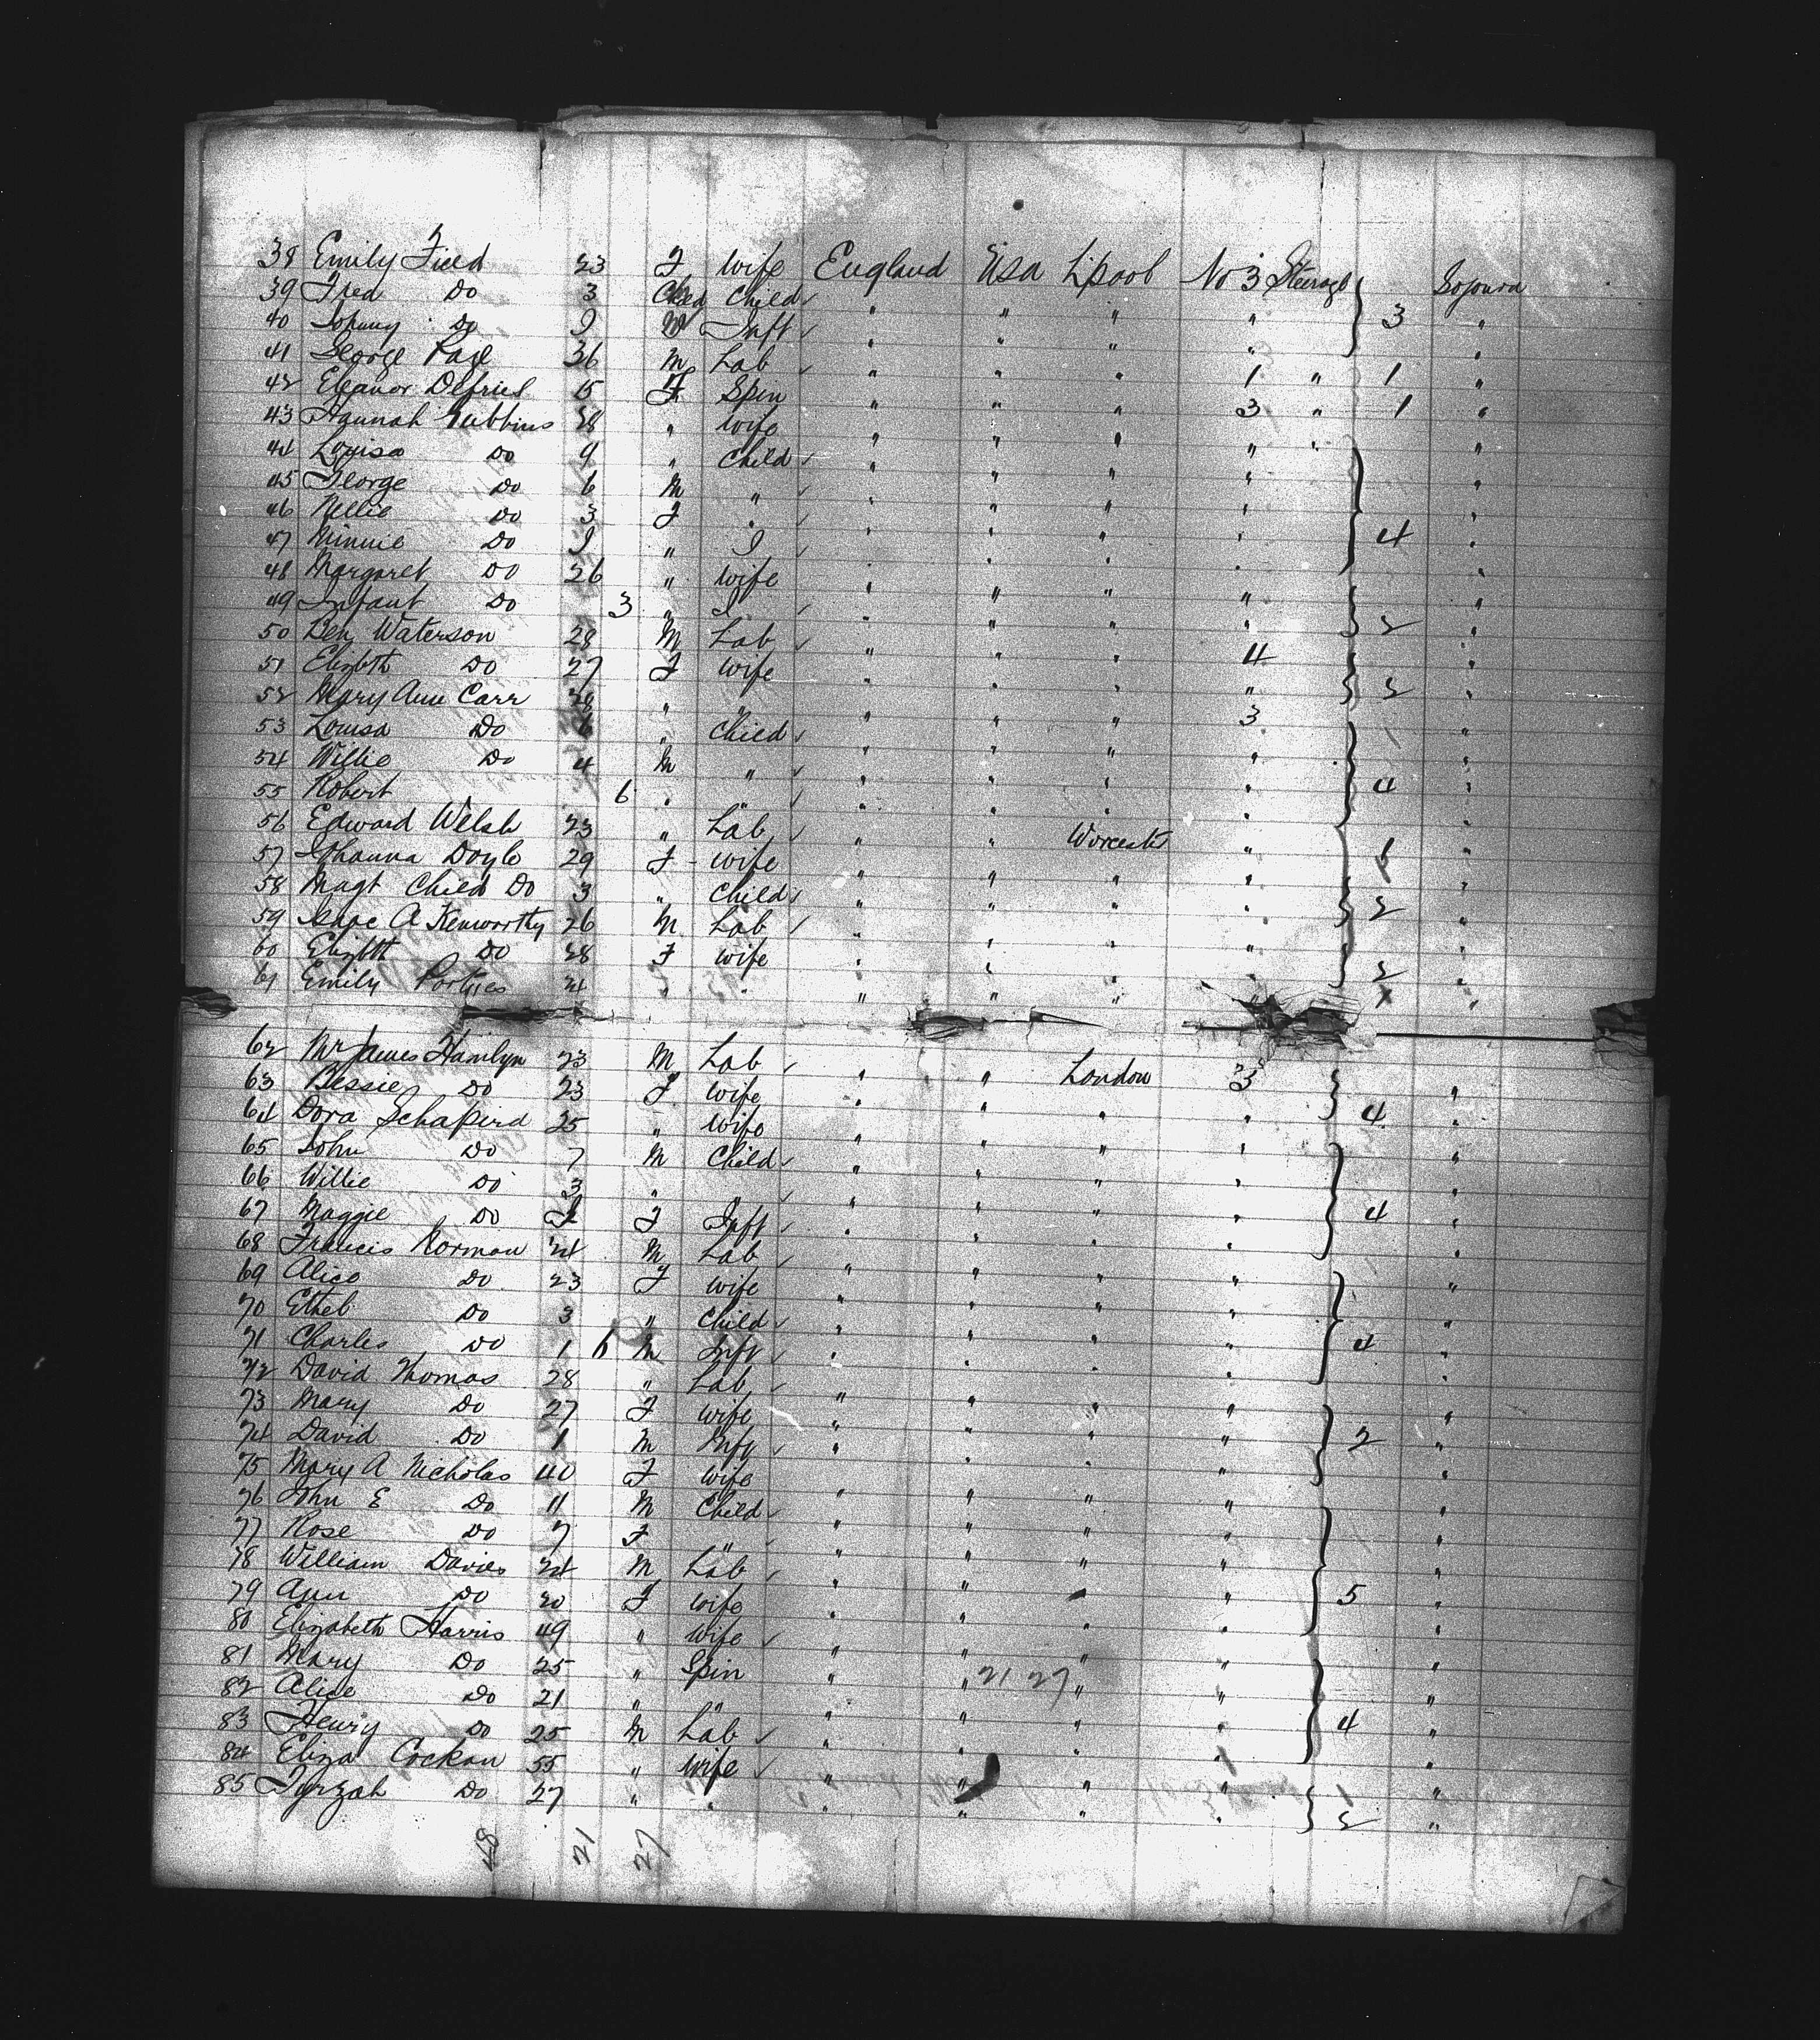 38 Emily Field 23 F Wife England Usa Lpool No 3 Steerage
39 Fred Do 3 Child " " " "
40 Johnny Do Inft " " " " 3 "
41 George Page 36 M Lab " " " 1 " 1 "
42 Eleanor 15 F Spin " " " 3 " 1 "
43 Hannah Gubbins 28 " Wife " " " " " "
44 Louisa Do 9 " Child " " " " "
45 George Do 6 M " " " " " "
46 Nellie Do 3 F " " " " " "
47 Minnie Do I " I " " " " 4 "
48 Margaret Do 26 " Wife " " " " "
49 Infant Do 3 " I " " " " 2 "
50 Ben Waterson 28 M Lab " " " 4 "
51 Elizbth Do 27 F Wife " " " " 2 "
52 Mary Ann Carr " " " " " 3 "
53 Louisa Do 6 " Child " " " " "
54 Willie Do 4 M " " " " " "
55 Robert 6 " " " " " " 4 "
56 Edward Welsh 23 " Lab " " Worcester " 1 "
57 Johanna Doyle 29 F Wife " " " " "
58 Magt Child Do 3 " Child " " " " 2 "
59 Isaac A Kenworthy 26 M Lab " " " " "
60 Elizbth Do 28 F Wife " " " " 2 "
61 Emily 21 " " " " " x "
62 Mr James Hamlyn 23 M Lab " " London 3 "
63 Bessie Do 23 F Wife " " " " 4 "
64 Dora Schapird 25 " Wife " " " " "
65 John Do 7 M Child " " " " "
66 Willie Do 3 " " " " " " "
67 Maggie Do I F Inft " " " " 4 "
68 Francis Norman 24 M Lab " " " " "
69 Alice Do 23 F Wife " " " " "
70 Ethel Do 3 " Child " " " " "
71 Charles Do 1 6 M Inft " " " " 4 "
72 David Thomas 28 " Lab " " " " "
73 Mary Do 27 F Wife " " " " "
74 David Do 1 M Inft " " " " 2 "
75 Mary A Nicholas 40 F Wife " " " " "
76 John E Do 11 M Child " " " " "
77 Rose Do 7 F " " " " " "
78 William Davies 24 M Lab " " " " "
79 Ann Do 20 F Wife " " " " 5 "
80 Elizabeth Harris 49 " Wife " " " " "
81 Mary Do 25 " Spin " " 21 27 " " "
82 Alice Do 21 " " " " " " "
83 Henry Do 25 M Lab " " " " 4 "
84 Eliza Cockan 55 " Wife " " " " "
85 Tyrzah Do 27 " " " " " " 2 "
48 21 27